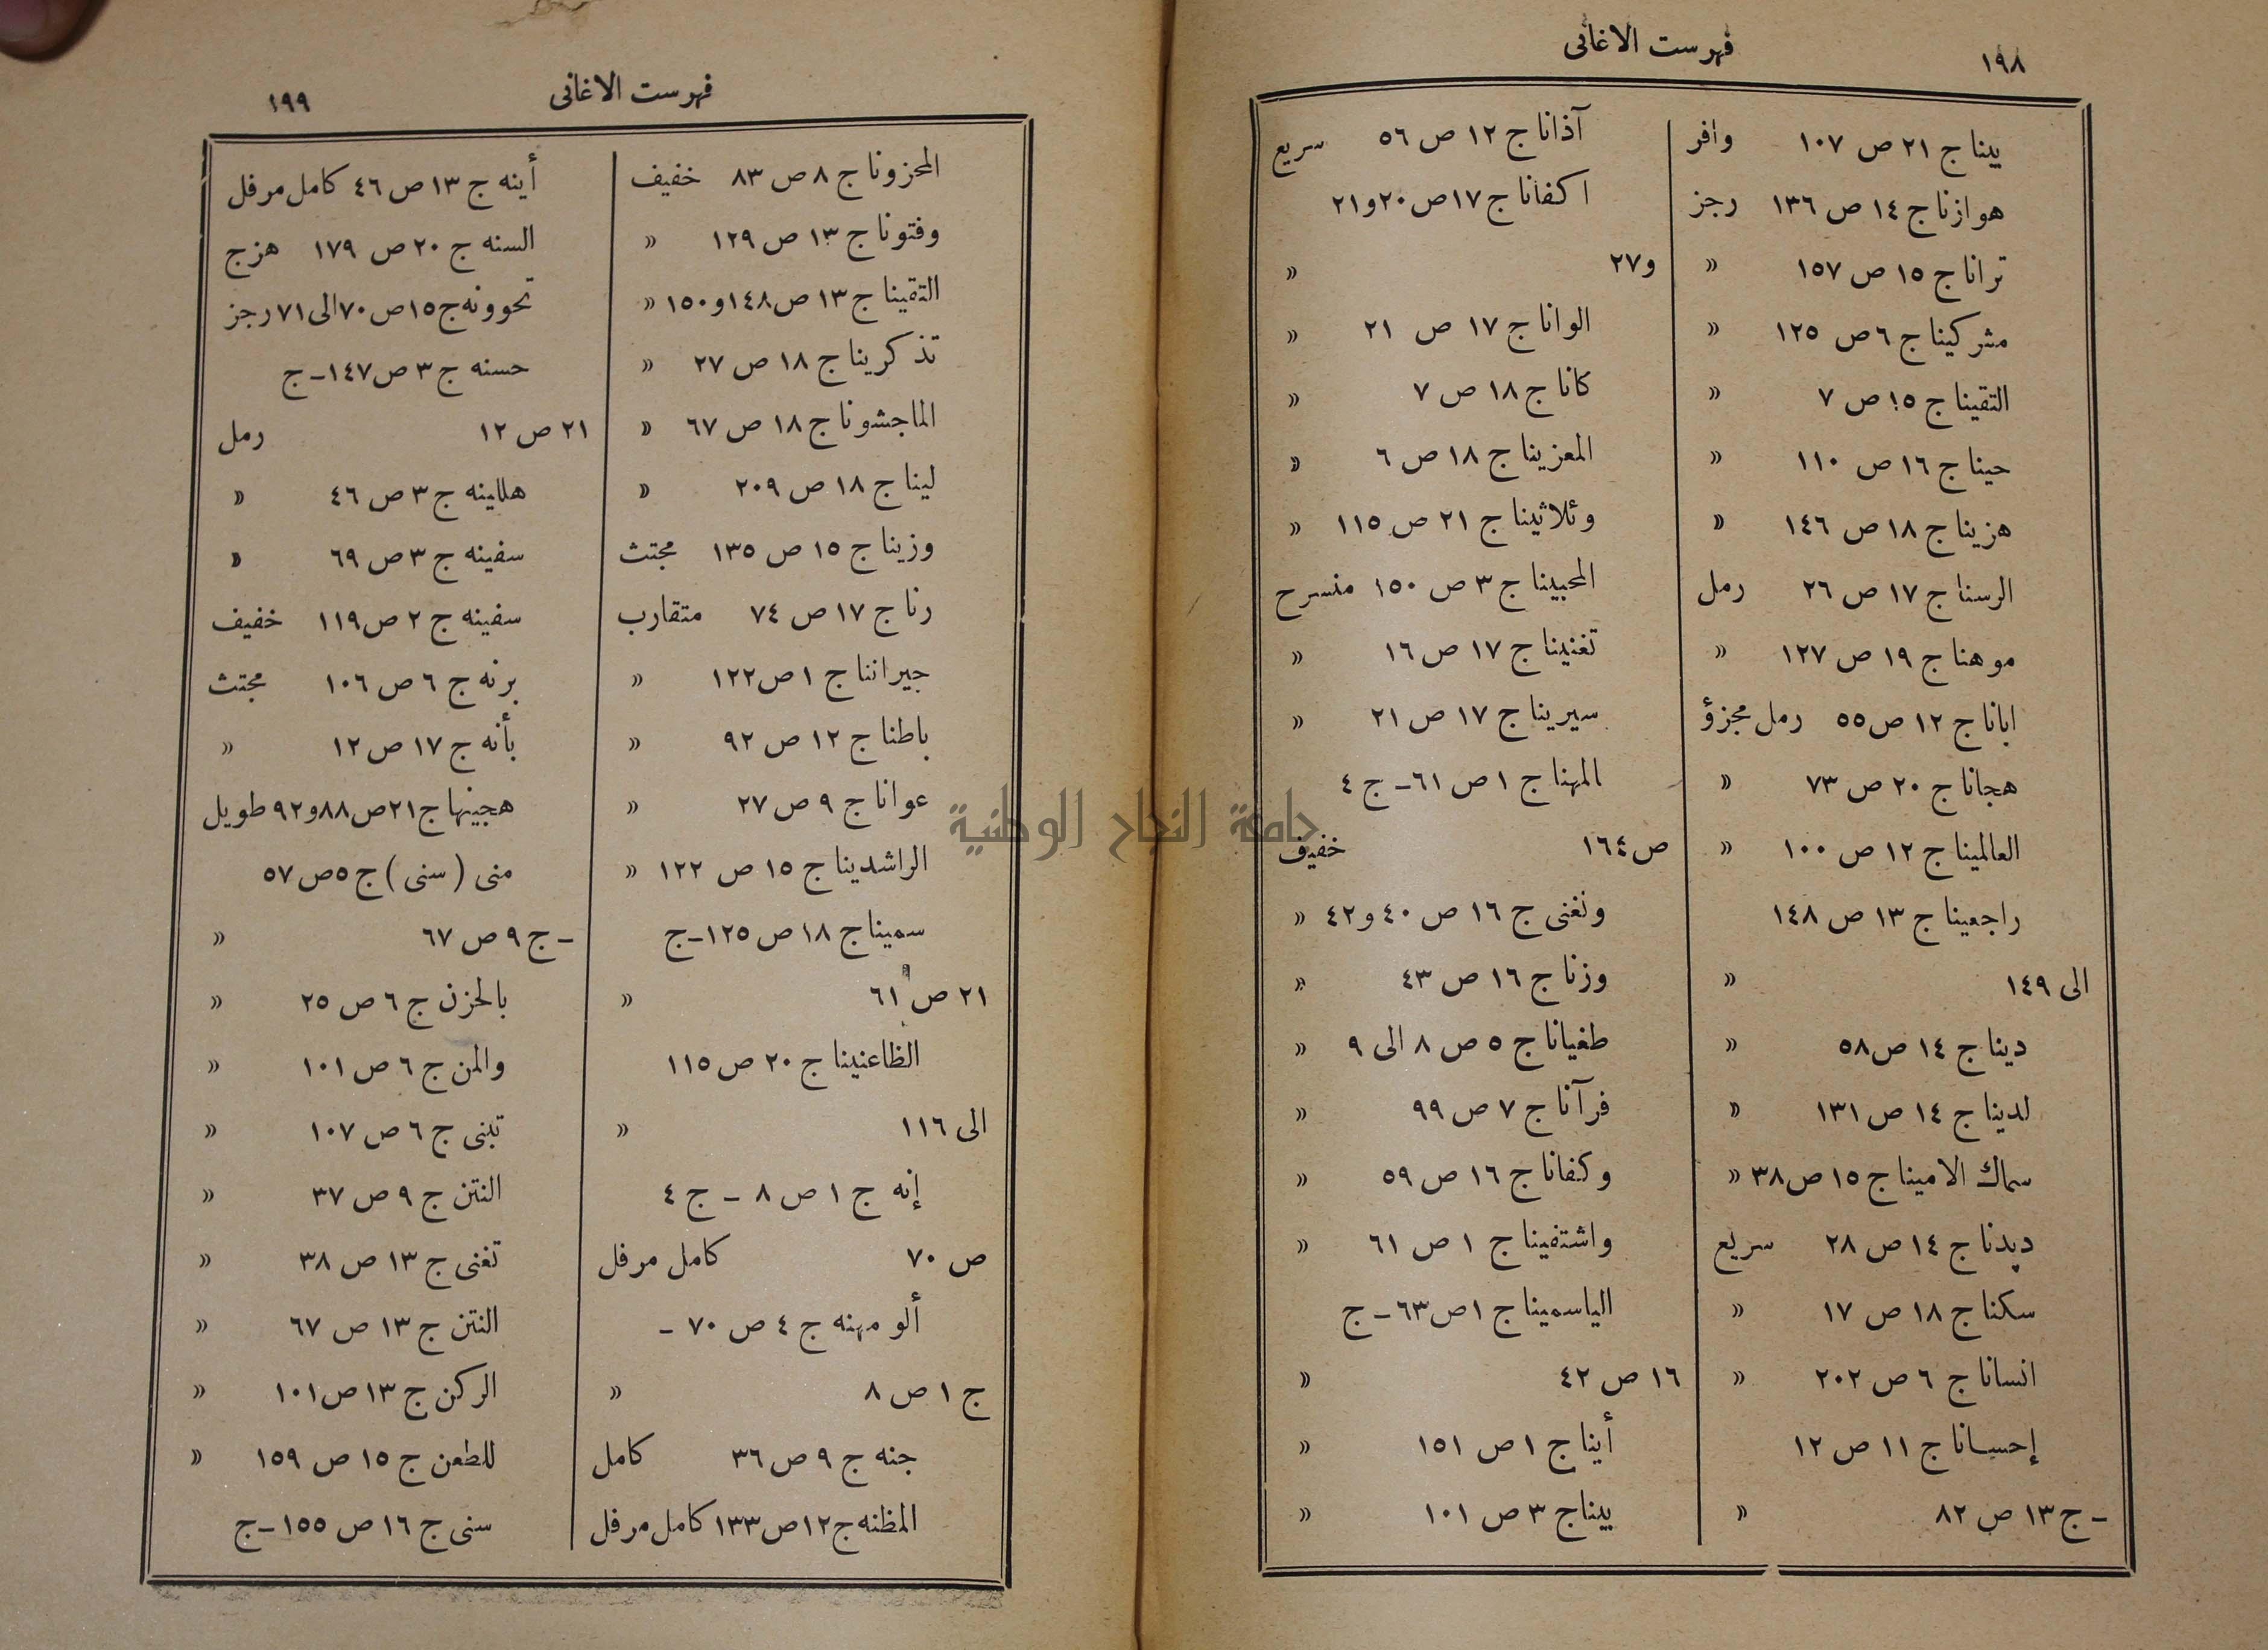 ١٩٨
فهرست الاغانى
بيناج ٢١ ص ١٠٧ وافر
هوازناج ١٤ ص ١٣٦ رجز
تراناج ١٥ ص ١٥٧ »
مشركيناج ٦ ص ١٢٥ »
التقيناج ١٥ ص ٧ »
حيناج ١٦ ص ١١٠ »
هزيناج ١٨ ص ١٤٦ »
الرسناج ١٧ ص ٢٦ رمل
موهناج ١٩ ص ١٢٧ »
اباناج ١٢ ص ٥٥ رمل مجزؤ
هجاناج ٢٠ ص ٧٣ »
العالميناج ١٢ ص ١٠٠ »
راجعيناج ١٣ ص ١٤٨
الى ١٤٩ »
ديناج ١٤ ص ٥٨ »
لديناج ١٤ ص ١٣١ »
سماك الاميناج ١٥ ص ٣٨ »
ديدناج ١٤ ص ٢٨ سريع
سكناج ١٨ ص ١٧ »
انساناج ٦ ص ٢٠٢ »
إحساناج ١١ ص ١٢
ـ ج ١٣ ص ٨٢ »
آذاناج ١٢ ص ٥٦ سريع
اكفاناج ١٧ ص ٢٠ و ٢١
و ٢٧ »
الواناج ١٧ ص ٢١ »
كاناج ١٨ ص ٧ »
المعزيناج ١٨ ص ٦ »
وثلاثيناج ٢١ ص ١١٥ »
المحبيناج ٣ ص ١٥٠ منسرح
تغنيناج ١٧ ص ١٦ »
سيريناج ١٧ ص ٢١ »
المهناج ١ ص ٦١ ـ ج ٤
ص ١٦٤ خفيف
ونغنى ج ١٦ ص ٤٠ و ٤٢ »
وزناج ١٦ ص ٤٣ »
طغياناج ٥ ص ٨ الى ٩ »
فرآناج ٧ ص ٩٩ »
وكفاناج ١٦ ص ٥٩ »
واشتفيناج ١ ص ٦١ »
الياسميناج ١ ص ٦٣ ـ ج
١٦ ص ٤٢ »
أيناج ١ ص ١٥١ »
بيناج ٣ ص ١٠١ »
جامعة النجاح الوطنية
فهرست الاغانى
١٩٩
المحزوناج ٨ ص ٨٣ خفيف
وفتوناج ١٣ ص ١٢٩ »
التقيناج ١٣ ص ١٤٨ و ١٥٠ »
تذكريناج ١٨ ص ٢٧ »
الماجشوناج ١٨ ص ٦٧ »
ليناج ١٨ ص ٢٠٩ »
وزيناج ١٥ ص ١٣٥ مجتث
رناج ١٧ ص ٧٤ متقارب
جيرانناج ١ ص ١٢٢ »
باطناج ١٢ ص ٩٢ »
عواناج ٩ ص ٢٧ »
الراشديناج ١٥ ص ١٢٢ »
سميناج ١٨ ص ١٢٥ ـ ج
٢١ ص ٦١ »
الظاعنيناج ٢٠ ص ١١٥
الى ١١٦ »
إنه ج ١ ص ٨ ـ ج ٤
ص ٧٠ كامل مرفل
ألو مهنه ج ٤ ص ٧٠ ـ
ج ١ ص ٨ »
جنه ج ٩ ص ٣٦ كامل
المظنه ج ١٢ ص ١٣٣ كامل مرفل
أينه ج ١٣ ص ٤٦ كامل مرفل
السنه ج ٢٠ ص ١٧٩ هزج
تحوونه ج ١٥ ص ٧٠ الى ٧١ رجز
حسنه ج ٣ ص ١٤٧ ـ ج
٢١ ص ١٢ رمل
هلاينه ج ٣ ص ٤٦ »
سفينه ج ٣ ص ٦٩ »
سفينه ج ٢ ص ١١٩ خفيف
برنه ج ٦ ص ١٠٦ مجتث
بأنه ج ١٧ ص ١٢ »
هجينها ج ٢١ ص ٨٨ و ٩٢ طويل
منى (سنى) ج ٥ ص ٥٧
ـ ج ٩ ص ٦٧ »
بالحزن ج ٦ ص ٢٥ »
والمن ج ٦ ص ١٠١ »
تبنى ج ٦ ص ١٠٧ »
النتن ج ٩ ص ٣٧ »
تغنى ج ١٣ ص ٣٨ »
النتن ج ١٣ ص ٦٧ »
الركن ج ١٣ ص ١٠١ »
للطعن ج ١٥ ص ١٥٩ »
سنى ج ١٦ ص ١٥٥ ـ ج